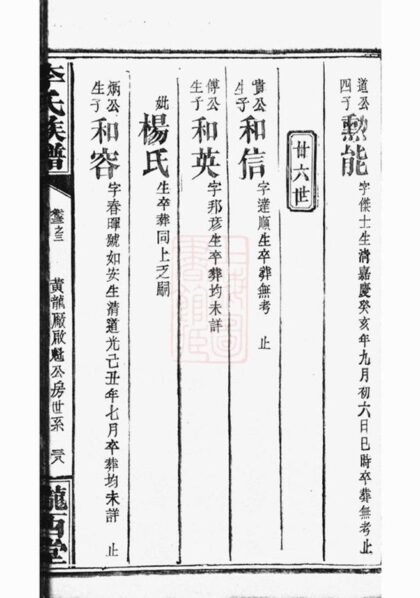 道公四子勲能字傑士生清嘉慶癸亥年九月初六日巳時卒葬無考止
廿六世
貴公生子和信字達順生卒葬無考止
傅公生子和英字邦彦生卒葬均未詳
妣楊氏生卒葬同上乏嗣
炳公生子和容字春暉號如安生清道光己丑年七月卒葬均未詳止
李氏族譜
卷之三
黃龍廠啟魁公房世系
隴西堂